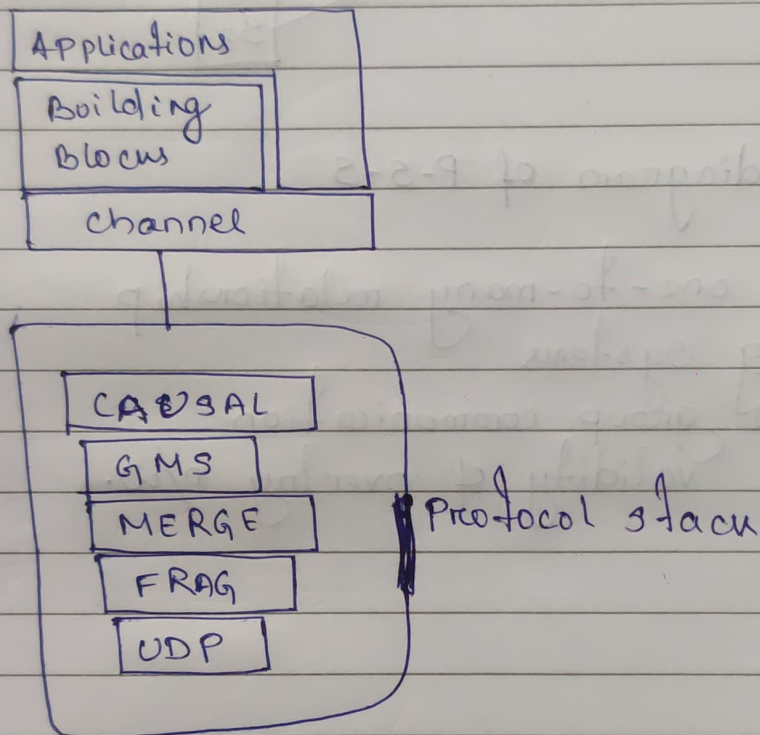 Applications
Building
Blocks
Channel
CAUSAL
GMS
MERGE
FRAG
UDP
Protocol stack